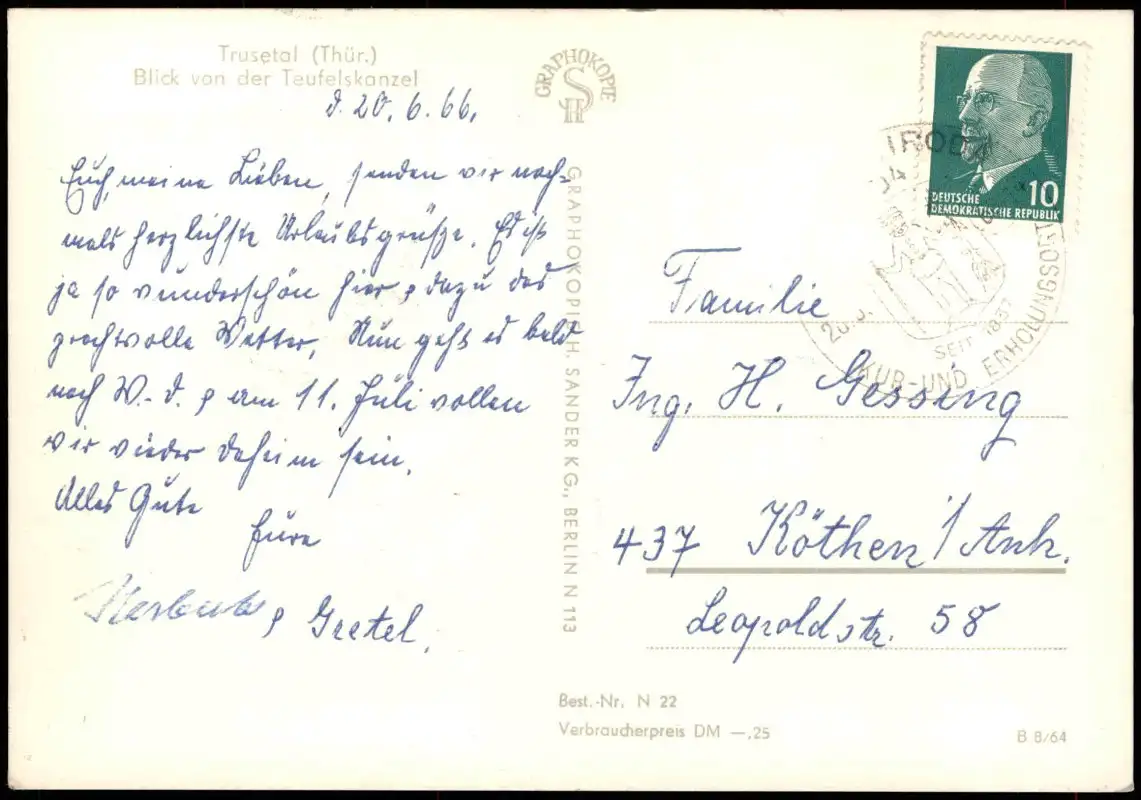 Trusetal (Thür.)
Blick von der Teufelskanzel
d. 20. 6. 66.
Euch, meine Lieben, senden wir noch-
mals herzlichste Urlaubsgrüße. Es ist
ja so wunderschön hier u dazu das
prachtvolle Wetter. Nun geht es bald
nach W.-d. u am 11. Juli wollen
wir wieder daheim sein.
Alles Gute
Eure
u Gretel.
GRAPHOKOPIE
SH
GRAPHOKOPIE H. SANDER KG., BERLIN N 113
DEUTSCHE
DEMOKRATISCHE REPUBLIK
10
SEIT 1837
KUR-UND ERHOLUNGSORT
Familie
Ing. H. Gessing
437 Köthen / Anh.
Leopoldstr. 58
Best.-Nr. N 22
Verbraucherpreis DM —,25
B 8/64